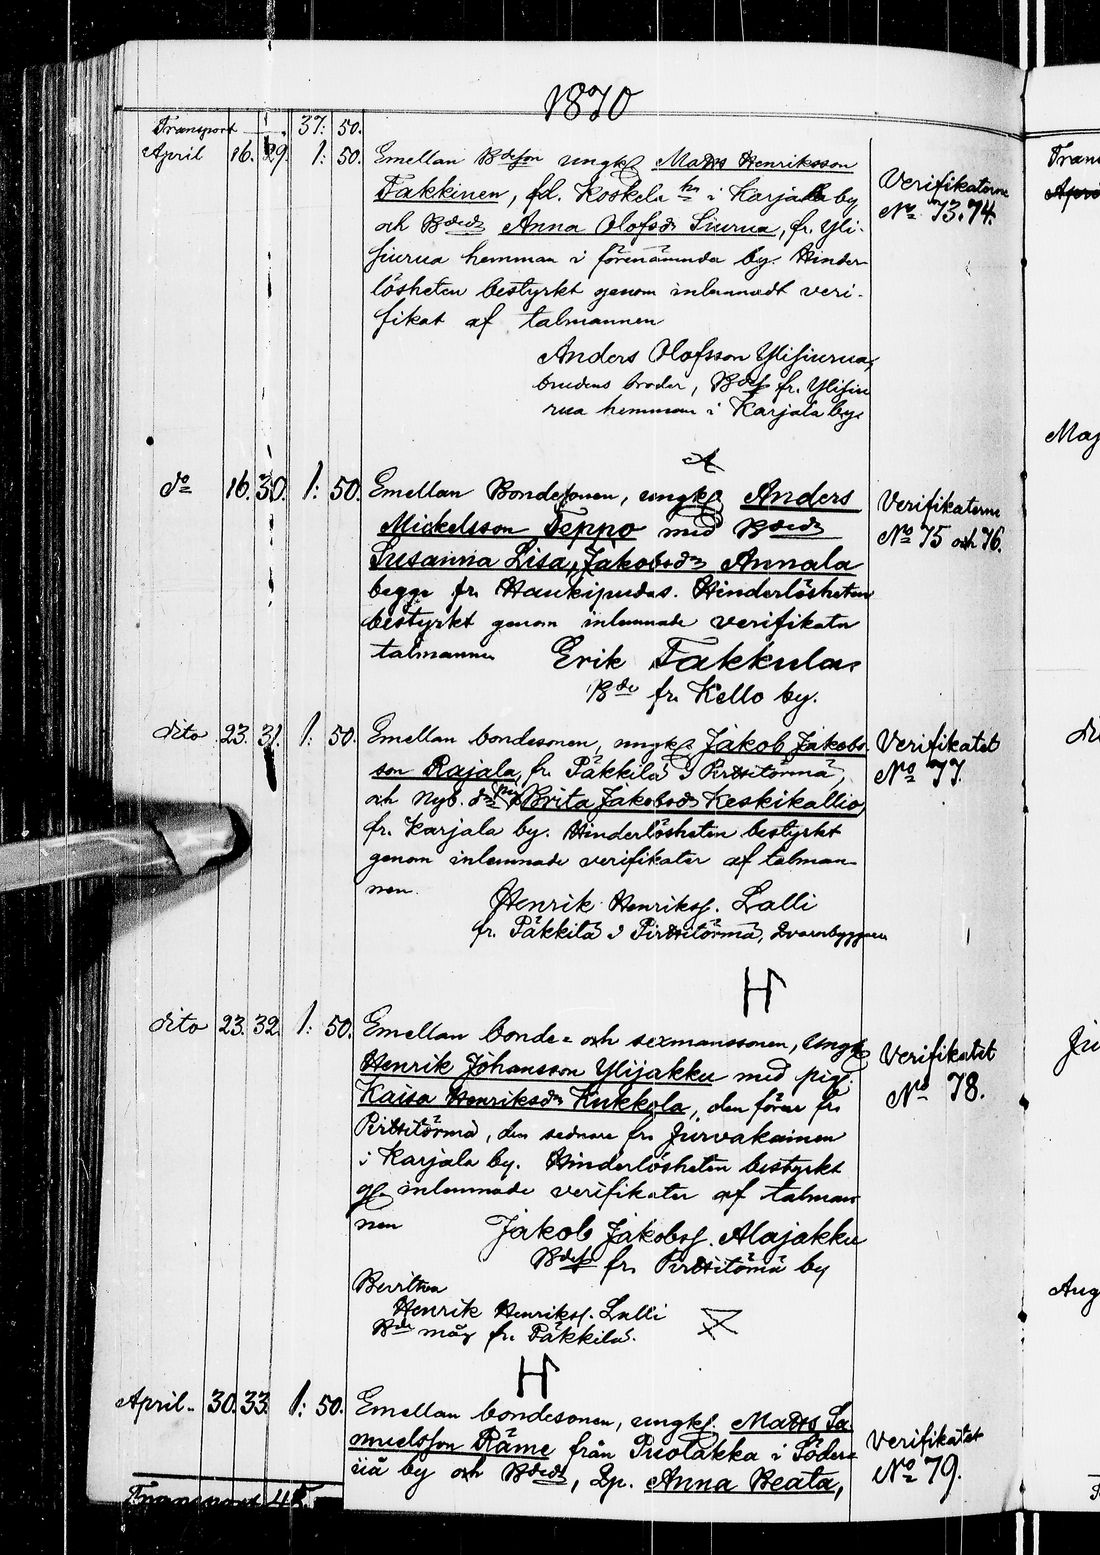 1870
Transport 37: 50.
April 16. 29. 1: 50. Emellan Bdeson ungk. Matts Henriksson
Takkinen, fd. Koskela hn i Karjala by
och Bdedr Anna Olofsdr Siurua, fr. Yli-
siurua hemman i förenämnda by. Hinder-
lösheten bestyrkt genom inlemnadt veri-
fikat af talmannen
Anders Olofsson Ylisiurua,
brudens broder, Bdes fr. Ylisiu
rua hemman i Karjala by.
Verifikaterne
No 73. 74.
A
do 16. 30. 1: 50. Emellan Bondesonen, ungk. Anders
Mickelsson Teppo med Bdedr
Susanna Lisa, Jakobsdr Annala
begge fr. Haukipudas. Hinderlösheten
bestyrkt genom inlemnade verifikater
talmannen Erik Takkula
Bde fr. Kello by.
Verifikaterne
No 75 och 76.
dito 23. 31. 1: 50. Emellan bondesonen, ungk. Jakob Jakobs
son Rajala, fr. Päkkilä i Pirttitörmä
och Nyb. dr pig. Brita Jakobsdr Keskikallio,
fr. Karjala by. Hinderlösheten bestyrkt
genom inlemnade verifikater af talman-
nen.
Henrik Henrikss. Lalli
fr. Päkkilä i Pirttitörmä, Qvarnbyggare
Verifikatet
No 77.
H
dito 23. 32. 1: 50. Emellan bonde- och sexmanssonen, ungk.
Henrik Johansson Ylijakku med pig.
Kaisa Henriksdr Kukkola, den förre fr.
Pirttitörmä, den sednare fr. Jurvakainen
i Karjala by. Hinderlösheten bestyrkt
gm inlemnade verifikater af talman
nen Jakob Jakobss. Alajakku
Bdes fr. Pirttitörmä by
Bevittna
Henrik Henrikss. Lalli
Bde måg fr. Päkkilä.
Verifikatet
No 78.
H
April 30. 33. 1: 50. Emellan bondesonen, ungk. Matts Sa
muelsson Räme från Puolakka i Söder
Iiå by och Bdedr, Qp. Anna Beata,
Verifikatet
No 79.
Transport
Tran
April
Maj
Aug